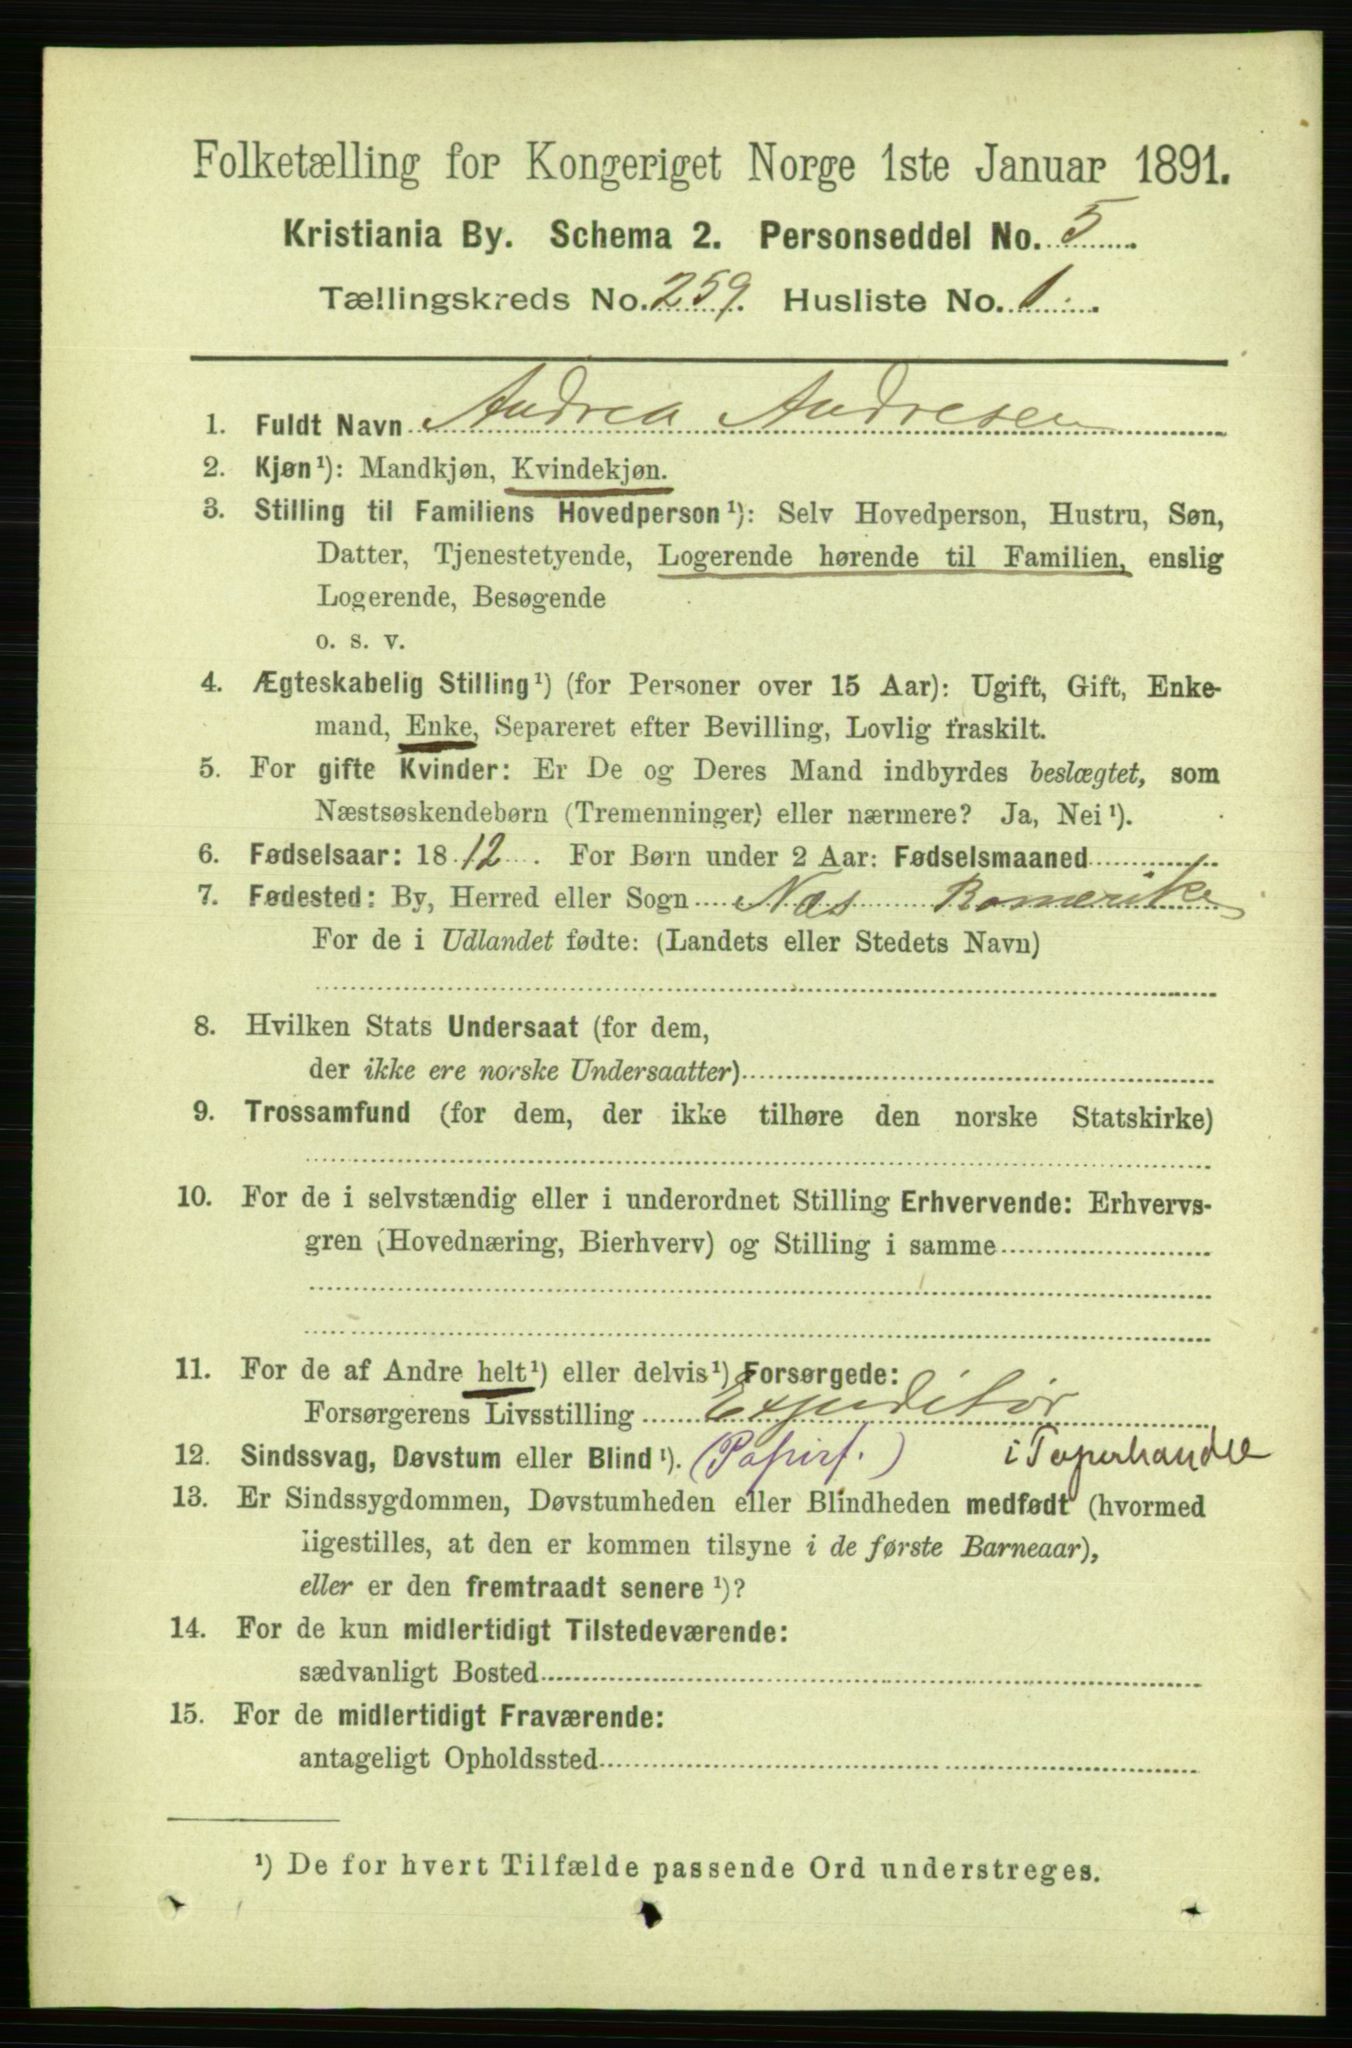 Folketælling for Kongeriget Norge 1ste Januar 1891.
Kristiania By. Schema 2. Personseddel No. 5
Tællingskreds No. 259. Husliste No. 1.
1. Fuldt Navn Andrea Andresen
2. Kjøn¹): Mandkjøn, Kvindekjøn.
3. Stilling til Familiens Hovedperson¹): Selv Hovedperson, Hustru, Søn,
Datter, Tjenestetyende, Logerende hørende til Familien, enslig
Logerende, Besøgende
o. s. v.
4. Ægteskabelig Stilling¹) (for Personer over 15 Aar): Ugift, Gift, Enke-
mand, Enke, Separeret efter Bevilling, Lovlig fraskilt.
5. For gifte Kvinder: Er De og Deres Mand indbyrdes beslægtet, som
Næstsøskendebørn (Tremenninger) eller nærmere? Ja, Nei¹).
6. Fødselsaar: 1812. For Børn under 2 Aar: Fødselsmaaned
7. Fødested: By, Herred eller Sogn Næs Romerike
For de i Udlandet fødte: (Landets eller Stedets Navn)
8. Hvilken Stats Undersaat (for dem,
der ikke ere norske Undersaatter)
9. Trossamfund (for dem, der ikke tilhøre den norske Statskirke)
10. For de i selvstændig eller i underordnet Stilling Erhvervende: Erhvervs-
gren (Hovednæring, Bierhverv) og Stilling i samme
11. For de af Andre helt¹) eller delvis¹) Forsørgede:
Forsørgerens Livsstilling Expeditør
12. Sindssvag, Døvstum eller Blind¹). (Papirf.) i Papirhandel
13. Er Sindssygdommen, Døvstumheden eller Blindheden medfødt (hvormed
ligestilles, at den er kommen tilsyne i de første Barneaar),
eller er den fremtraadt senere¹)?
14. For de kun midlertidigt Tilstedeværende:
sædvanligt Bosted
15. For de midlertidigt Fraværende:
antageligt Opholdssted
¹) De for hvert Tilfælde passende Ord understreges.